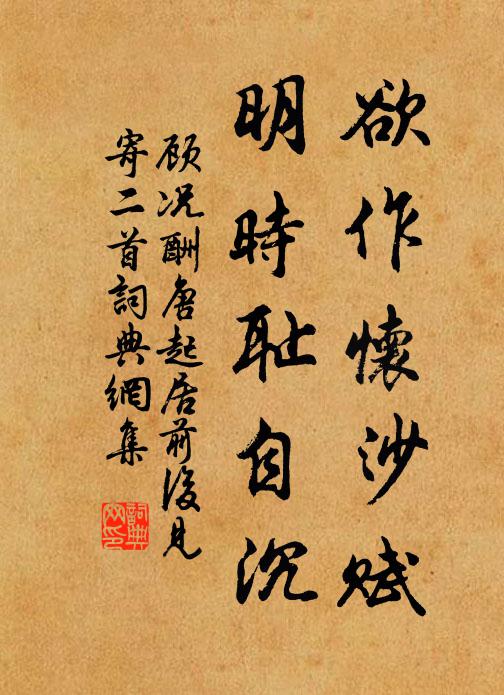 欲作懷沙賦
明時恥自沉
顾况酬唐起居前後见
寄二首詞典網集
詞典
网印